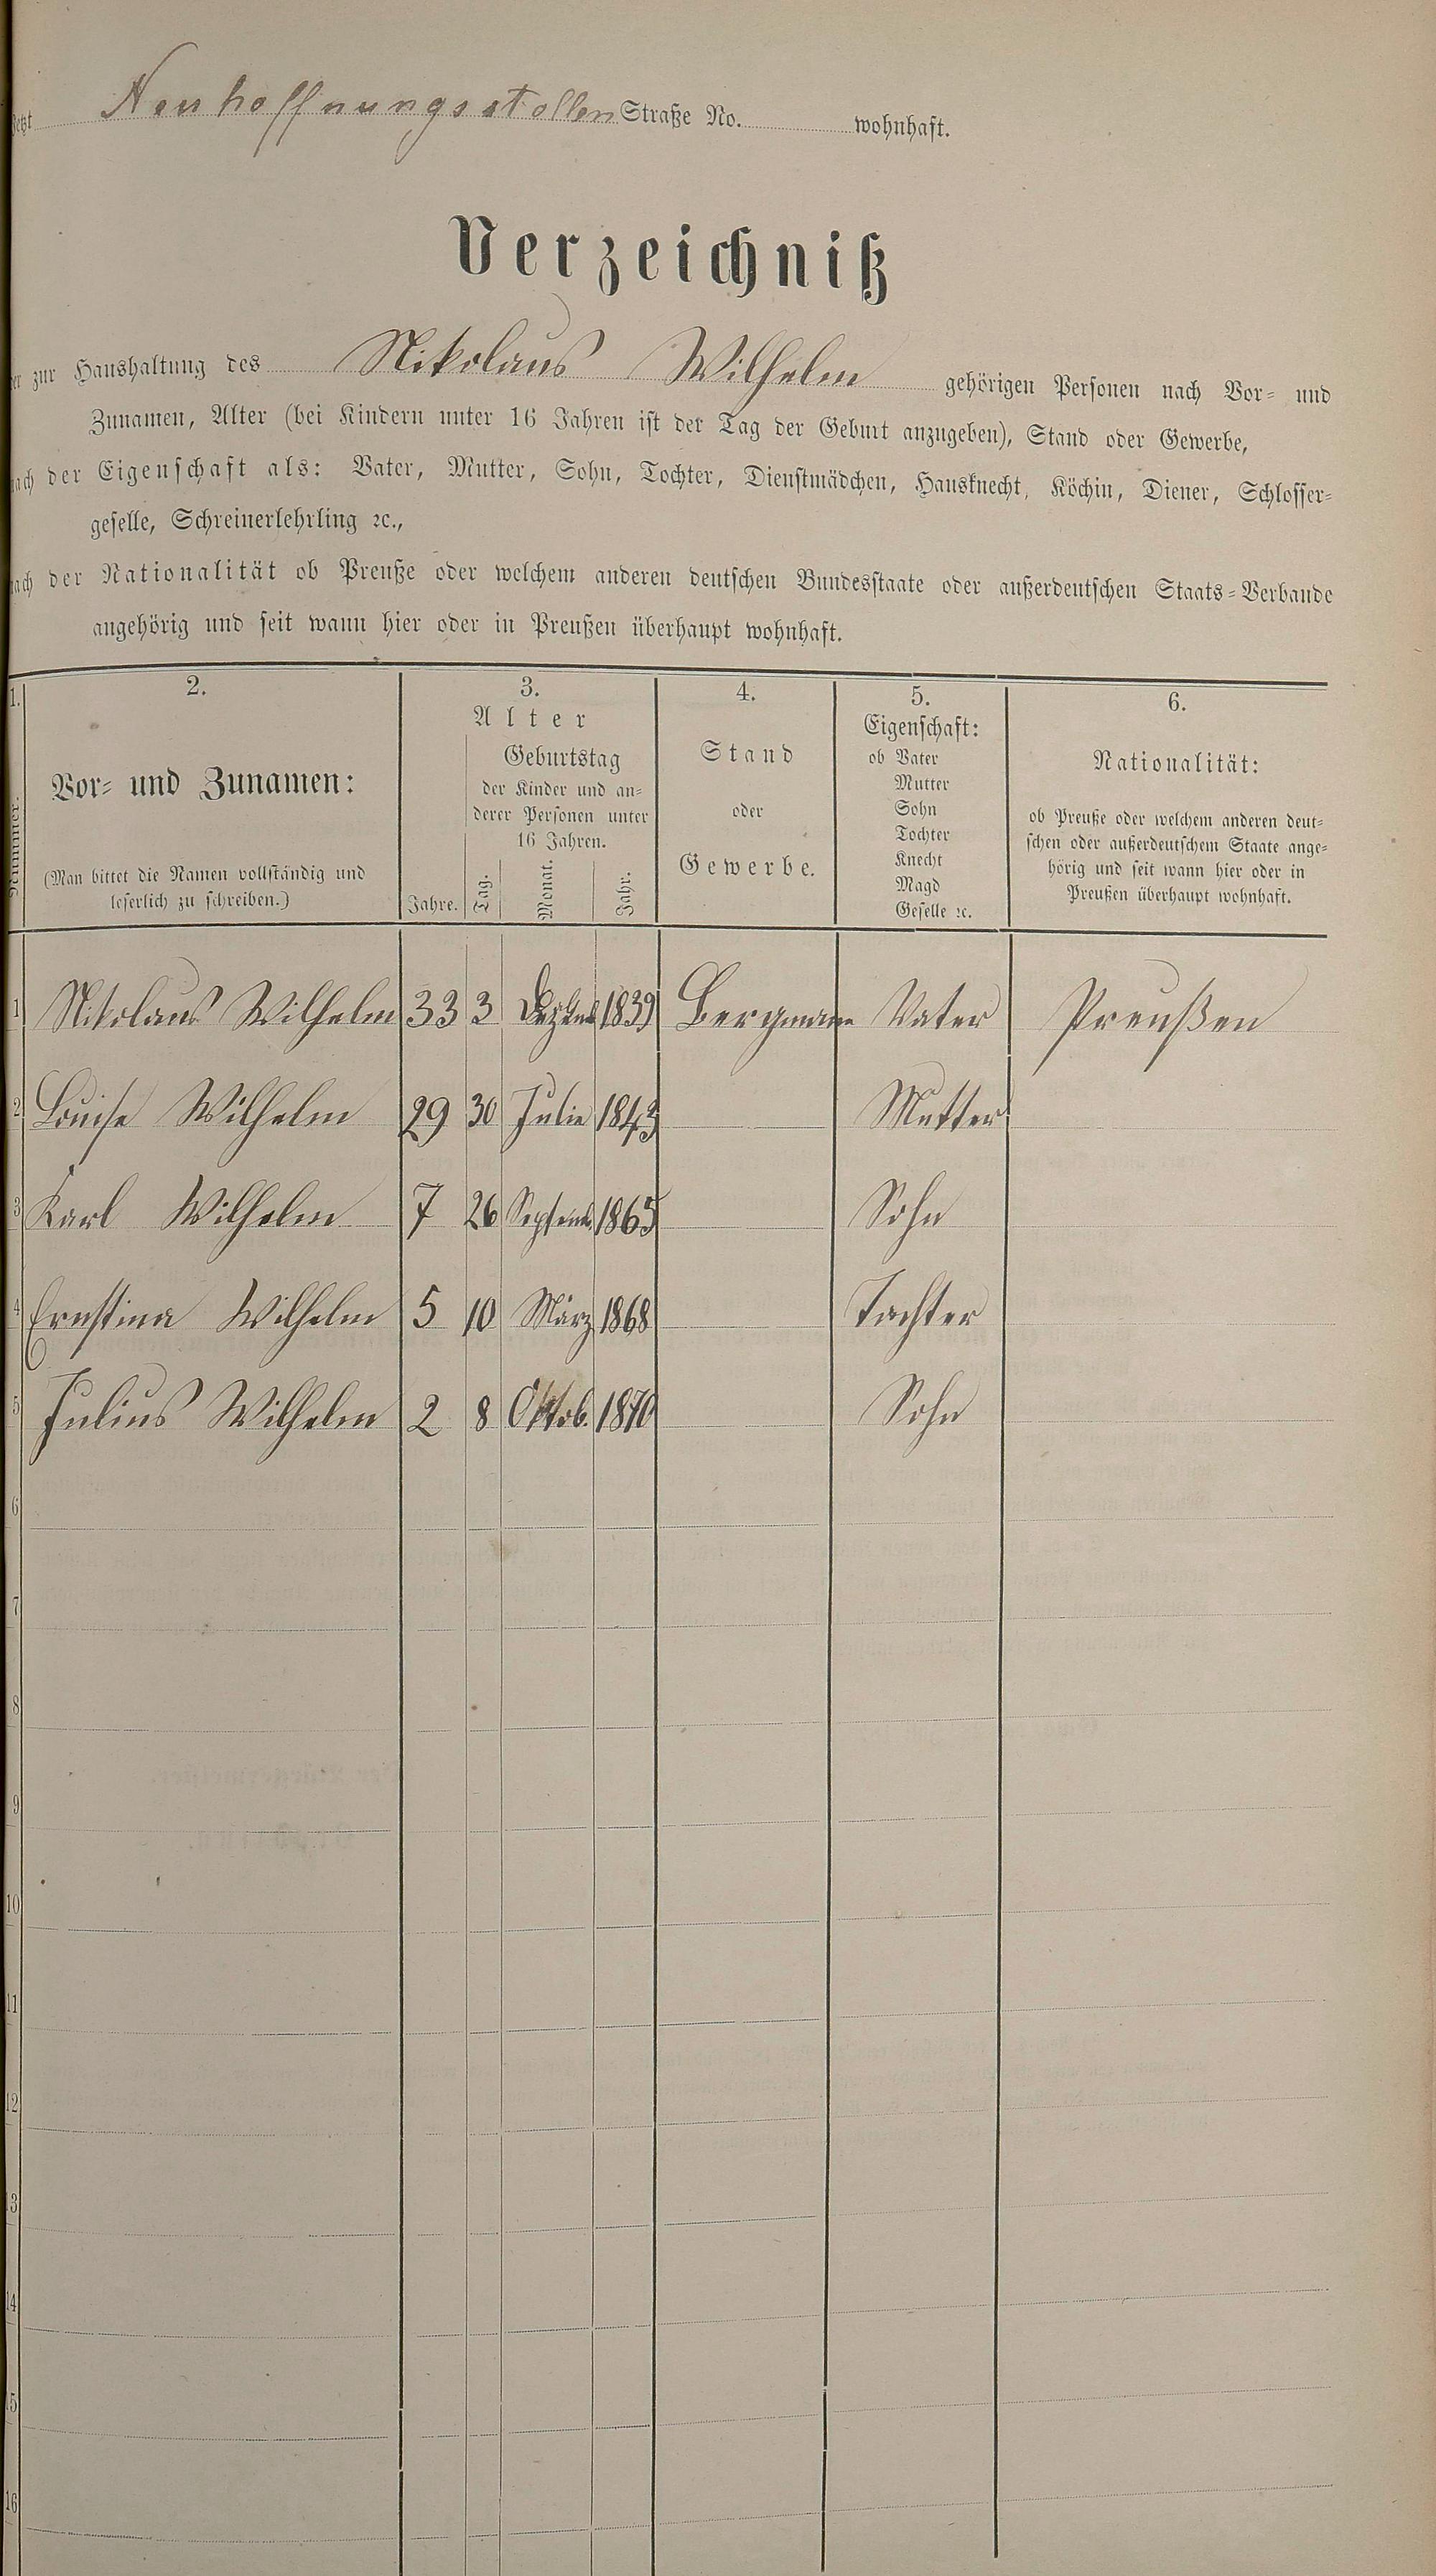 jetzt Neuhoffnungsstollen Straße No. wohnhaft.
Verzeichniß
zur Haushaltung des Nikolaus Wilhelm gehörigen Personen nach Vor- und
Zunamen, Alter (bei Kindern unter 16 Jahren ist der Tag der Geburt anzugeben), Stand oder Gewerbe,
nach der Eigenschaft als: Vater, Mutter, Sohn, Tochter, Dienstmädchen, Hausknecht, Köchin, Diener, Schlosser-
geselle, Schreinerlehrling ꝛc.,
nach der Nationalität ob Preuße oder welchem anderen deutschen Bundesstaate oder außerdeutschen Staats-Verbande
angehörig und seit wann hier oder in Preußen überhaupt wohnhaft.
1. 2. 3. 4. 5. 6.
Nummer.
Vor- und Zunamen:
(Man bittet die Namen vollständig und
leserlich zu schreiben.)
Alter
Jahre.
Geburtstag
der Kinder und an-
derer Personen unter
16 Jahren.
Tag. Monat. Jahr.
Stand
oder
Gewerbe.
Eigenschaft:
ob Vater
Mutter
Sohn
Tochter
Knecht
Magd
Geselle ꝛc.
Nationalität:
ob Preuße oder welchem anderen deut-
schen oder außerdeutschem Staate ange-
hörig und seit wann hier oder in
Preußen überhaupt wohnhaft.
1 Nikolaus Wilhelm 33 3 1839 Bergmann Vater Preußen
2 Louise Wilhelm 29 30 Julie 1843 Mutter
3 Karl Wilhelm 7 26 Septemb. 1865 Sohn
4 Ernstina Wilhelm 5 10 März 1868 Tochter
5 Julius Wilhelm 2 8 Oktob. 1870 Sohn
6
7
8
9
10
11
12
13
14
15
16